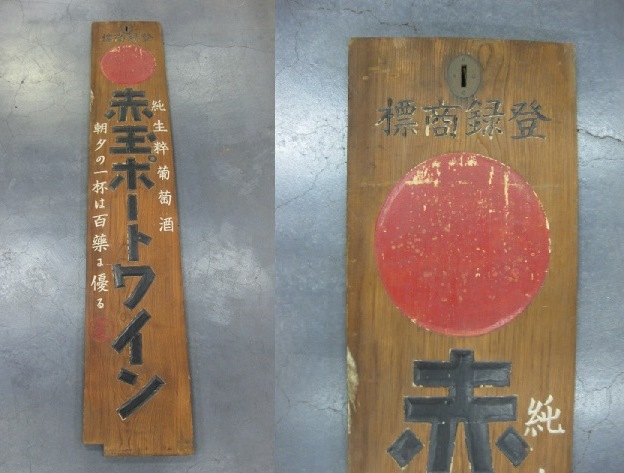 標商録登
赤玉ポートワイン
純生粹葡萄酒
朝夕の一杯は百藥に優る
標商録登
赤
純